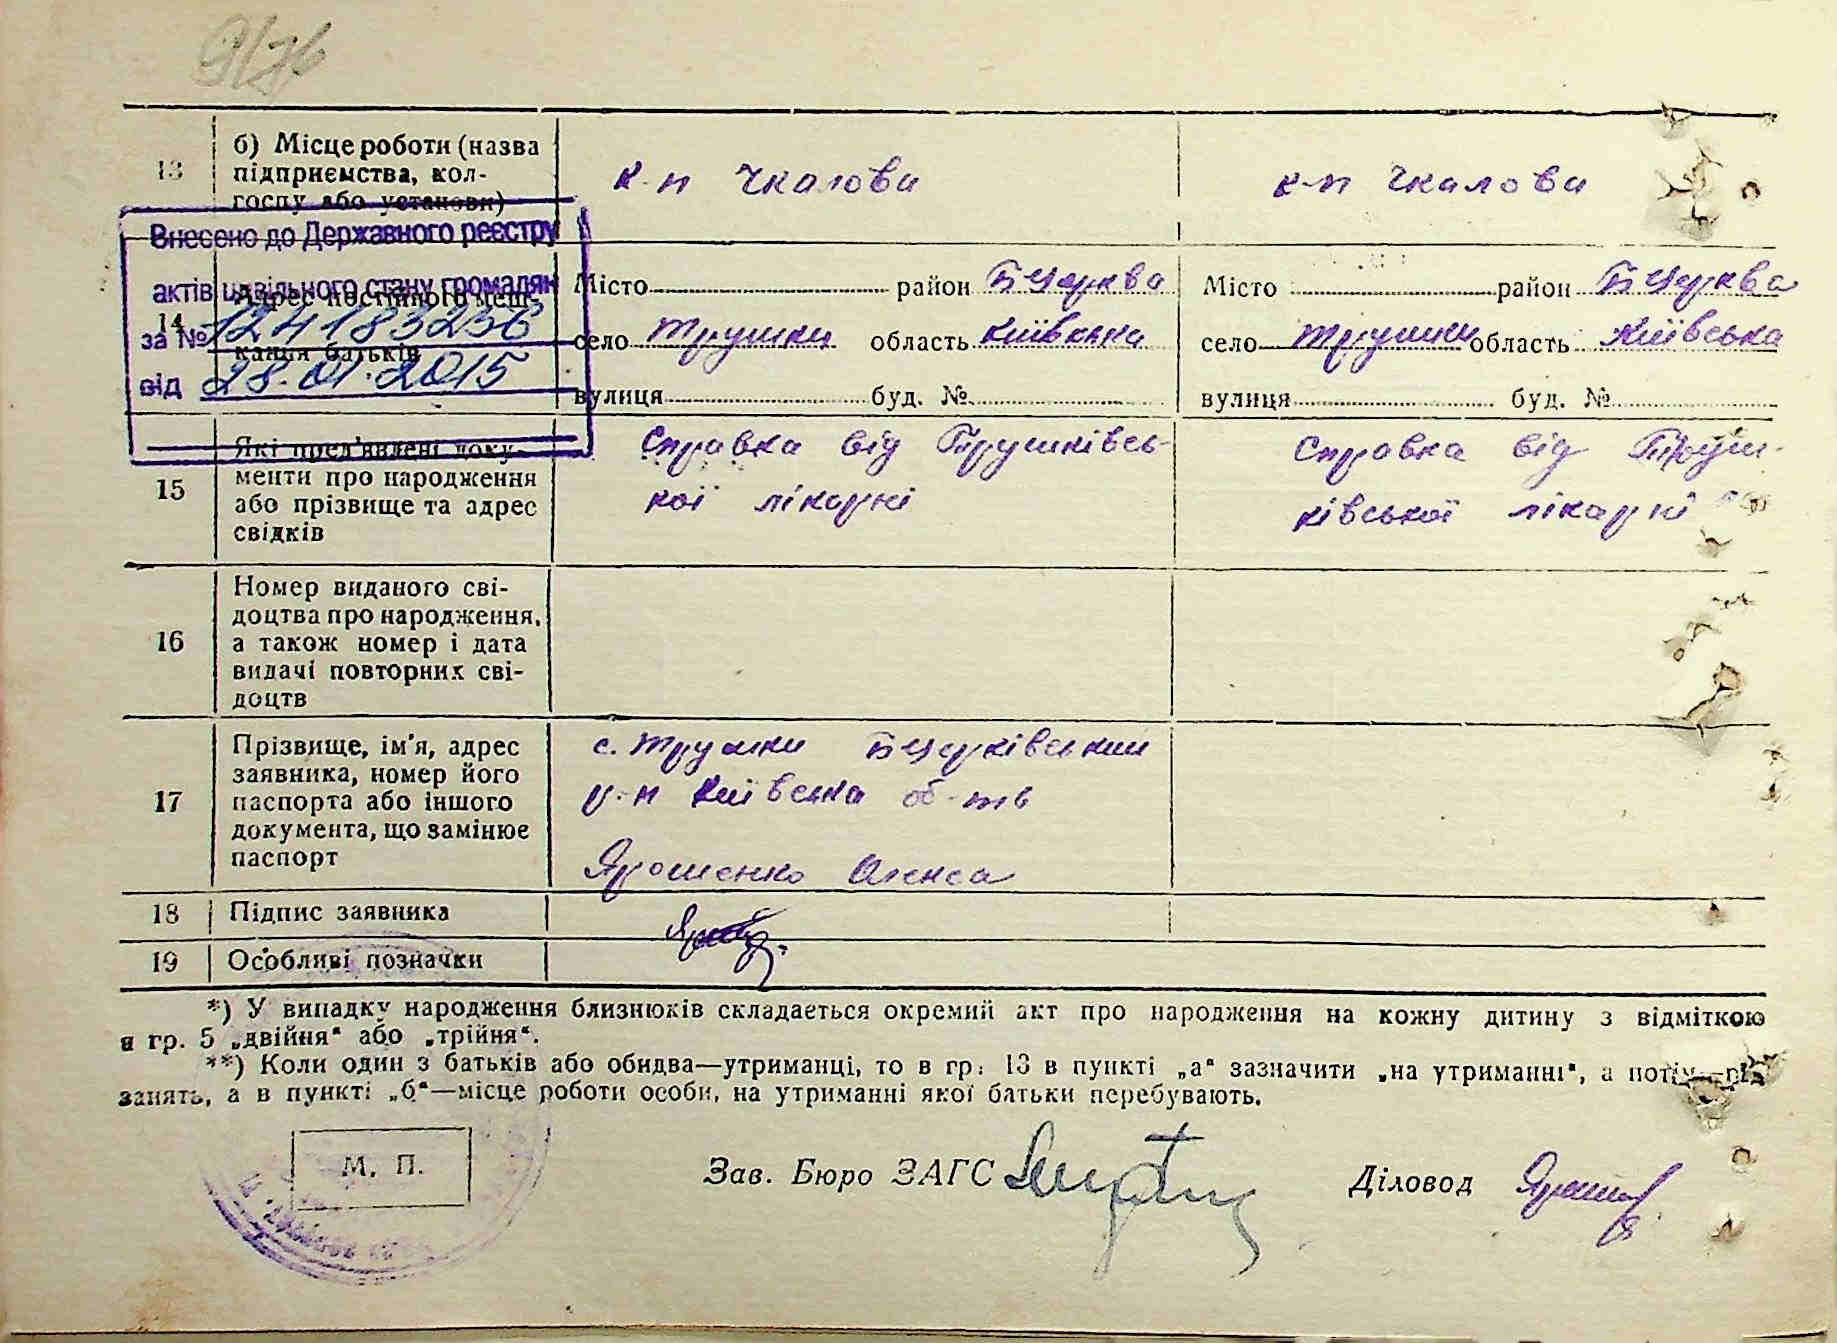 13
б) Місце роботи (назва
підприємства, кол-
госпу або установи)
к-п Чкалова
к-п Чкалова
Внесено до Державного реєстру
актів цивільного стану громадян
за № 12418323б
від 28.01.2015
14
Адрес постійного меш-
канця батьків
Місто район БЦерква
село Трушки область Київська
вулиця буд. №
Місто район БЦерква
село Трушки область Київська
вулиця буд. №
15
Які пред'явлені доку-
менти про народження
або прізвище та адрес
свідків
Справка від Трушківсь-
кої лікарні
Справка від Труш-
ківської лікарні
16
Номер виданого сві-
доцтва про народження,
а також номер і дата
видачі повторних сві-
доцтв
17
Прізвище, ім'я, адрес
заявника, номер його
паспорта або іншого
документа, що замінює
паспорт
с. Трушки БЦерківський
р-н Київська об-ть
Ярошенко Олекса
18
Підпис заявника
19
Особливі позначки
*) У випадку народження близнюків складається окремий акт про народження на кожну дитину з відміткою
в гр. 5 „двійня“ або „трійня“.
**) Коли один з батьків або обидва—утриманці, то в гр. 13 в пункті „а“ зазначити „на утриманні“, а потім—рід
занять, а в пункті „б“—місце роботи особи, на утриманні якої батьки перебувають.
М. П.
Зав. Бюро ЗАГС
Діловод